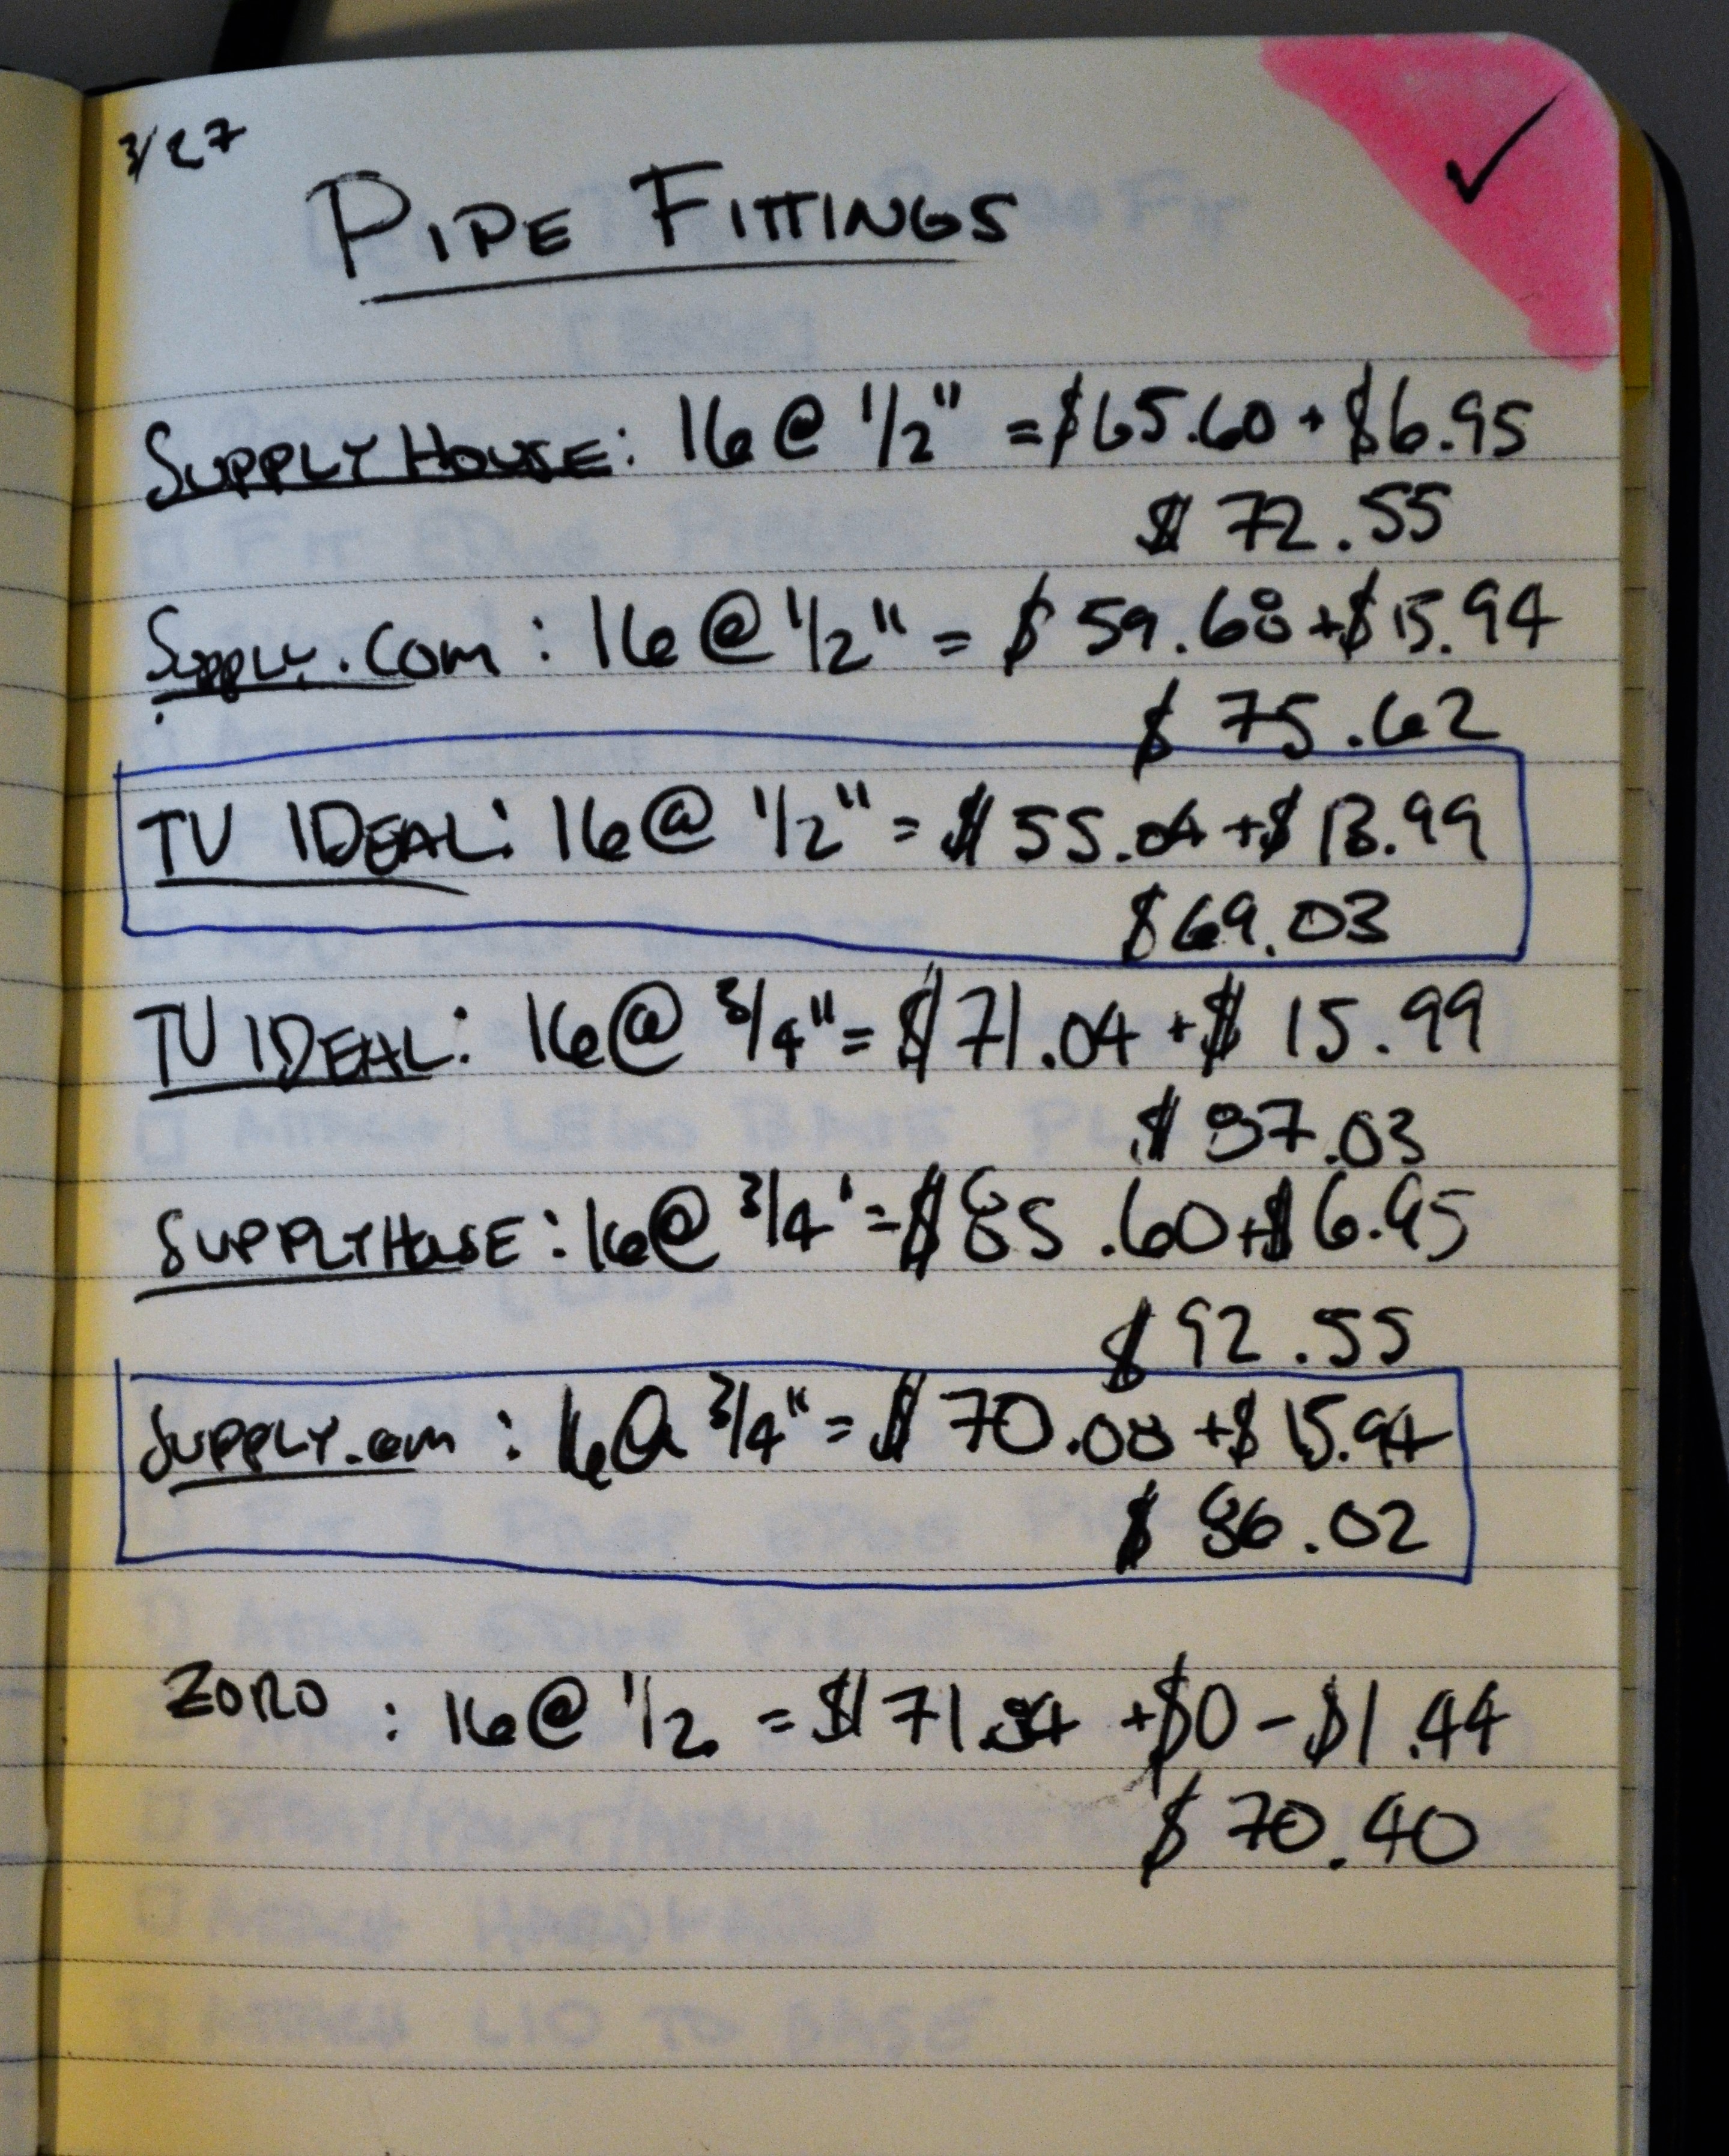 3/27
PIPE FITTINGS
SUPPLY HOUSE: 16 @ 1/2" = $65.60 + $6.95
$72.55
SUPPLY.COM: 16 @ 1/2" = $59.68 + $15.94
$75.62
TV IDEAL: 16 @ 1/2" = $55.04 + $13.99
$69.03
TV IDEAL: 16 @ 3/4" = $71.04 + $15.99
$87.03
SUPPLYHOUSE: 16 @ 3/4' = $85.60 + $6.95
$92.55
SUPPLY.COM: 16 @ 3/4" = $70.08 + $15.94
$86.02
ZORO: 16 @ 1/2 = $71.84 + $0 - $1.44
$70.40